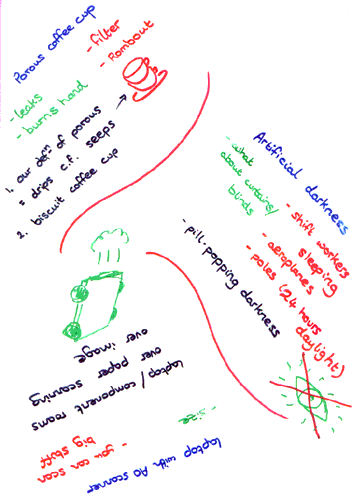 Porous coffee cup
- filter
- Rombout
- leaks
- burns hand
1. our defⁿ of porous
= drips c.f. seeps
2. biscuit coffee cup
Artificial darkness
- shift workers
sleeping
- aeroplanes
- poles (24 hours
daylight)
- what
about curtains/
blinds
- pill-popping darkness
laptop with A0 scanner
- you can scan
big stuff
- size
laptop / component rooms
over paper scanning
over image